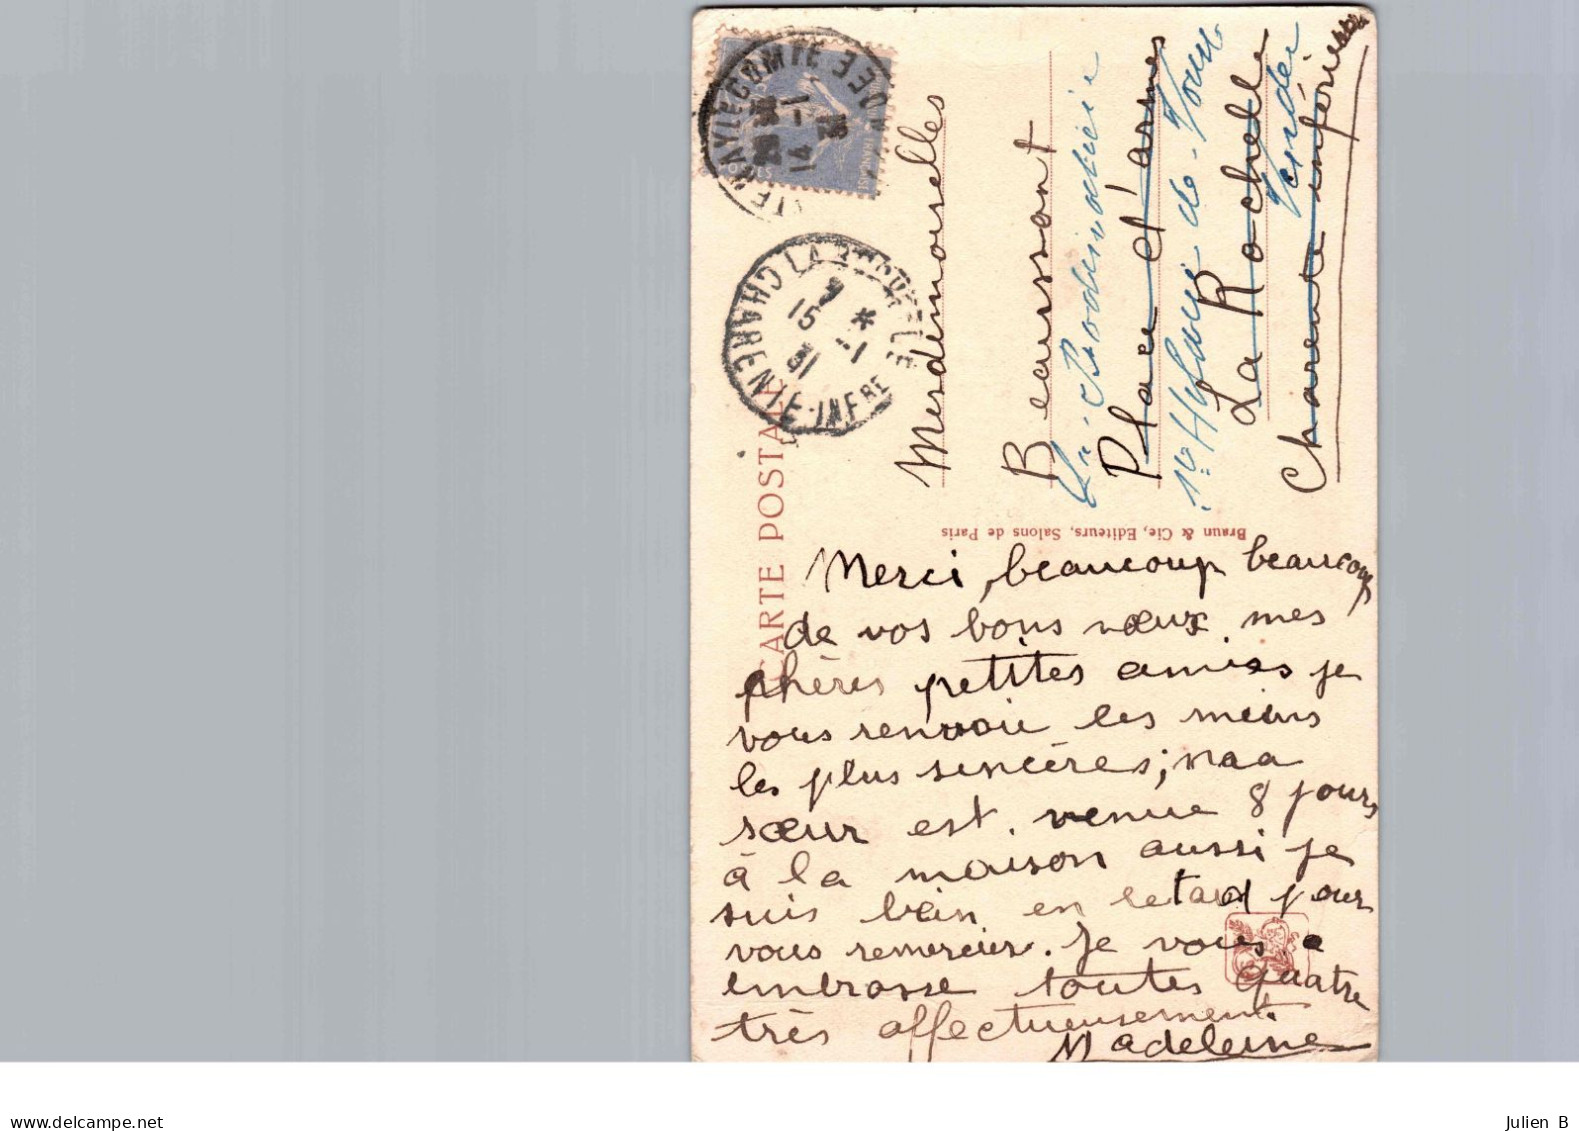 CARTE POSTALE
Mesdemoiselles
Beaussant
Place d'armes
La Rochelle
Vendée
Charente inférieure
FONTENAY-LE-COMTE VENDEE
12
14 -1
LA ROCHELLE CHARENTE-INFRE
9
15 -1
31
Braun & Cie, Editeurs, Salons de Paris
Merci, beaucoup beaucoup
de vos bons vœux mes
chères petites amies je
vous renvoie les miens
les plus sincères; ma
sœur est venue 8 jours
à la maison aussi je
suis bien en retard pour
vous remercier. Je vous
embrasse toutes quatre
très affectueusement.
Madeleine
www.delcampe.net
Julien B